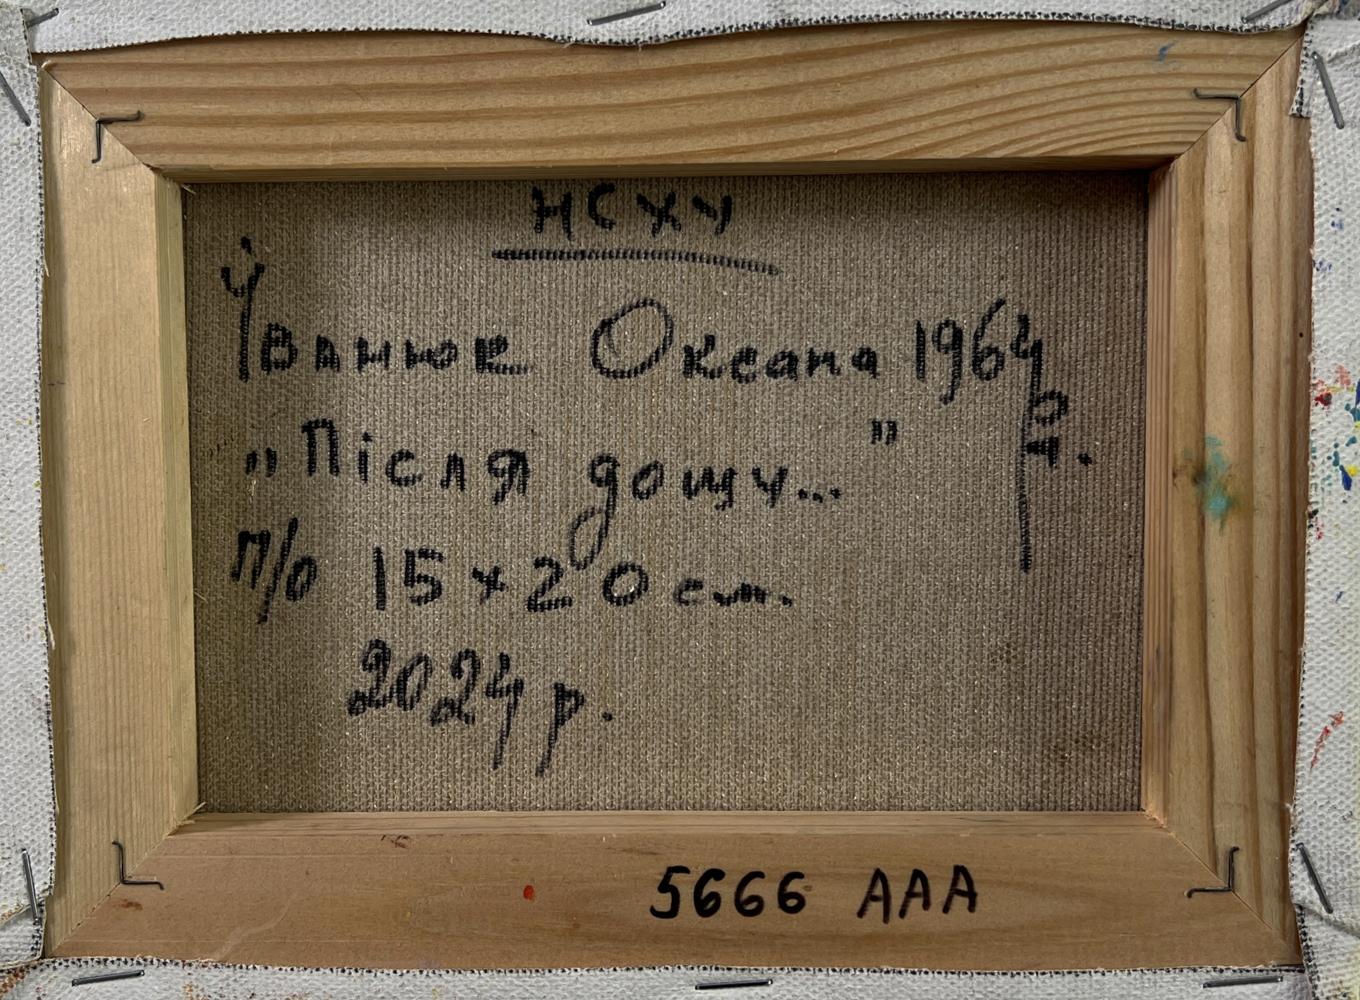 НСХУ
Іванюк Оксана 1964
р.н.
„Після дощу..."
п/о 15×20 см.
2024 р.
5666 ААА